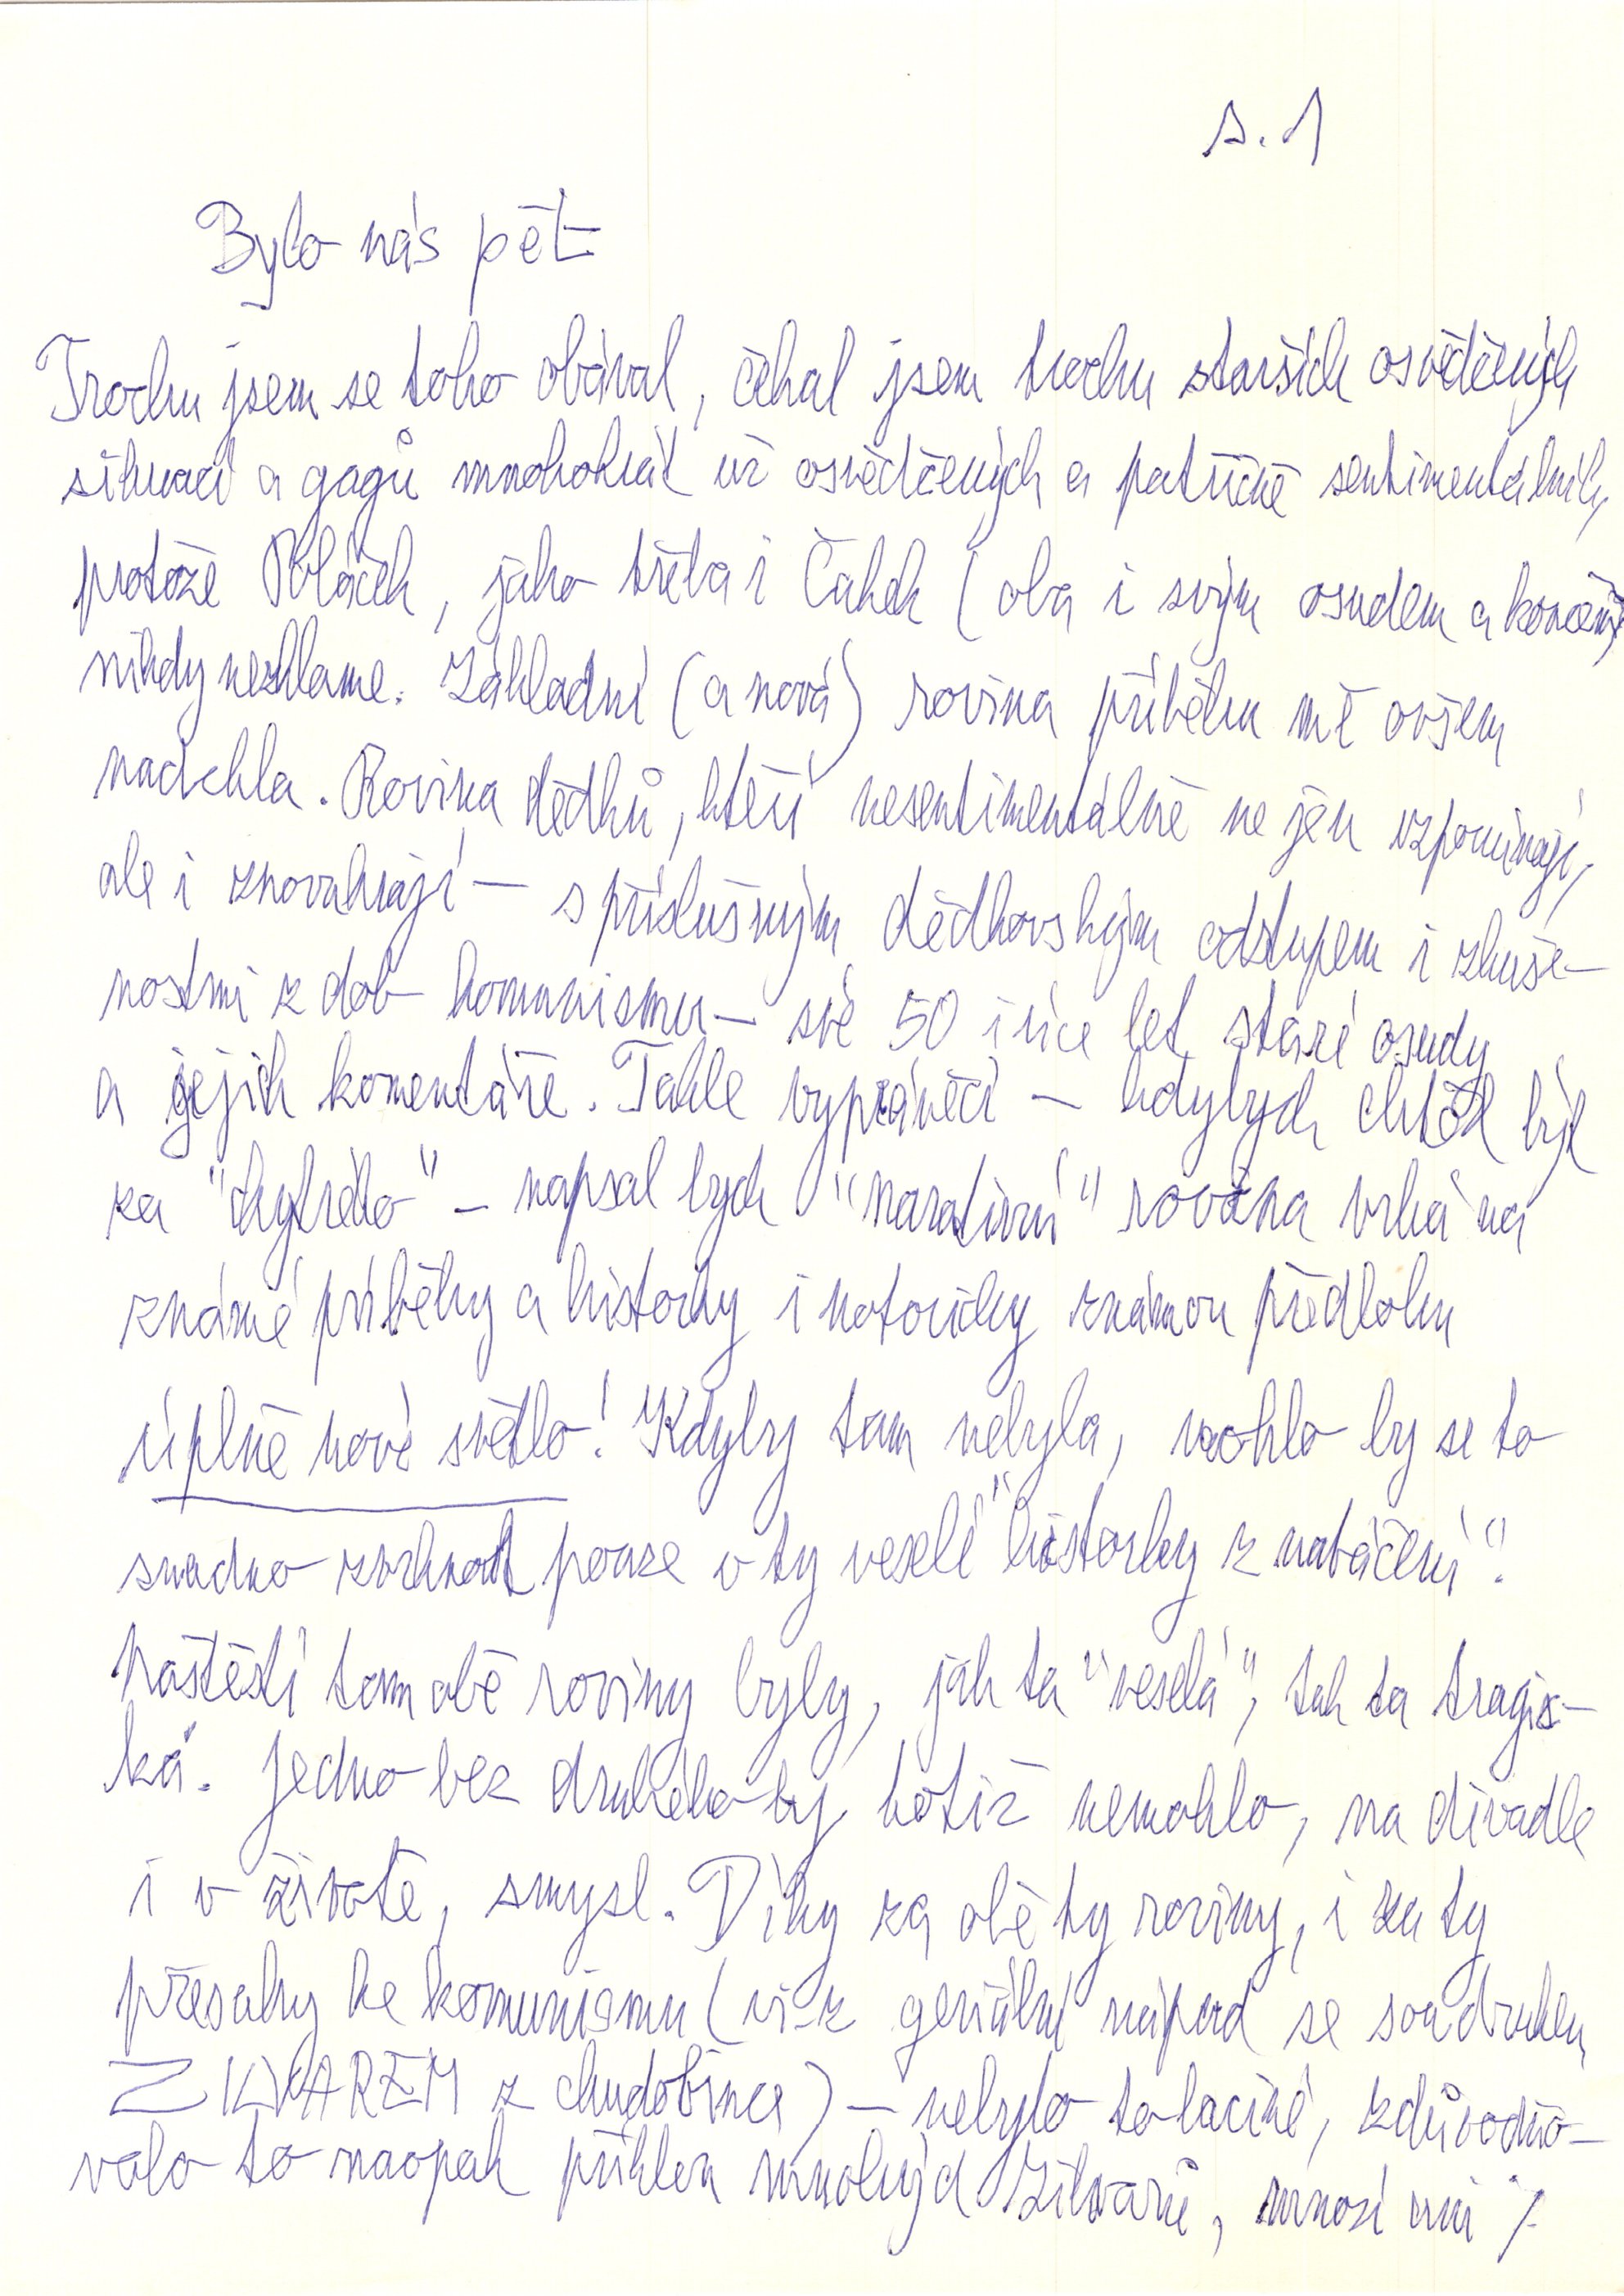 s. 1
Bylo nás pět
Trochu jsem se toho obával, čekal jsem trochu starších osvědčených
situací a gagů mnohokrát už osvědčených a patřičně sentimentálních,
protože Poláček, jako třeba i Čapek (oba i svým osudem a koncem)
nikdy nezklame. Základní (a nová) rovina příběhu mě ovšem
nadchla. Rovina dědků, kteří nesentimentálně nejen vzpomínají,
ale i znovuhrají — s příslušným dědkovským odstupem i zkuše-
nostmi z dob komunismu — své 50 i více let staré osudy
a jejich komentáře. Tahle vyprávěcí — kdybych chtěl být
za "chytrého" — napsal bych "narativní" rovina vrhá na
známé příběhy a historky i notoricky známou předlohu
úplně nové světlo! Kdyby tam nebyla, mohlo by se to
snadno zvrhnout pouze v ty veselé "historky z natáčení".
Naštěstí tam obě roviny byly, jak ta "veselá", tak ta tragic-
ká. Jedno bez druhého by totiž nemohlo, na divadle
i v životě, smysl. Díky za obě ty roviny, i za ty
přesahy ke komunismu (viz geniální nápad se soudruhem
ZKVAREM z chudobince) — nebylo to laciné, zdůvodňo-
valo to naopak příklon mnohých Zilvarů, mnozí mi /.